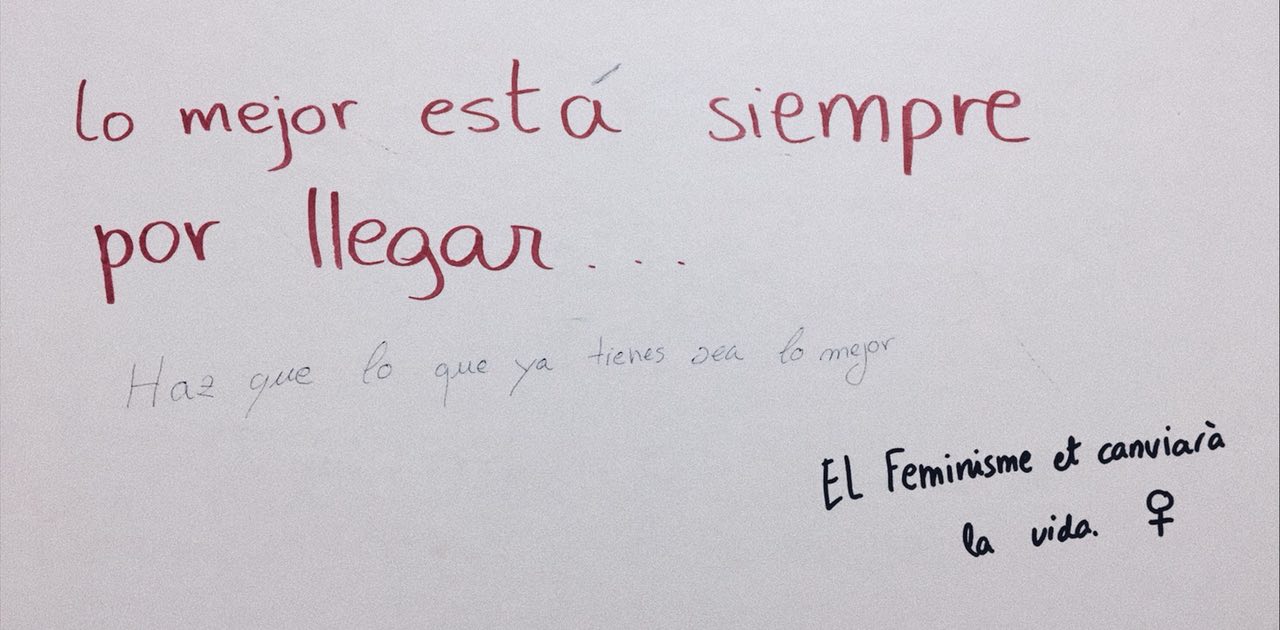 lo mejor está siempre
por llegar...
Haz que lo que ya tienes sea lo mejor
El Feminisme et canviarà
la vida. ♀